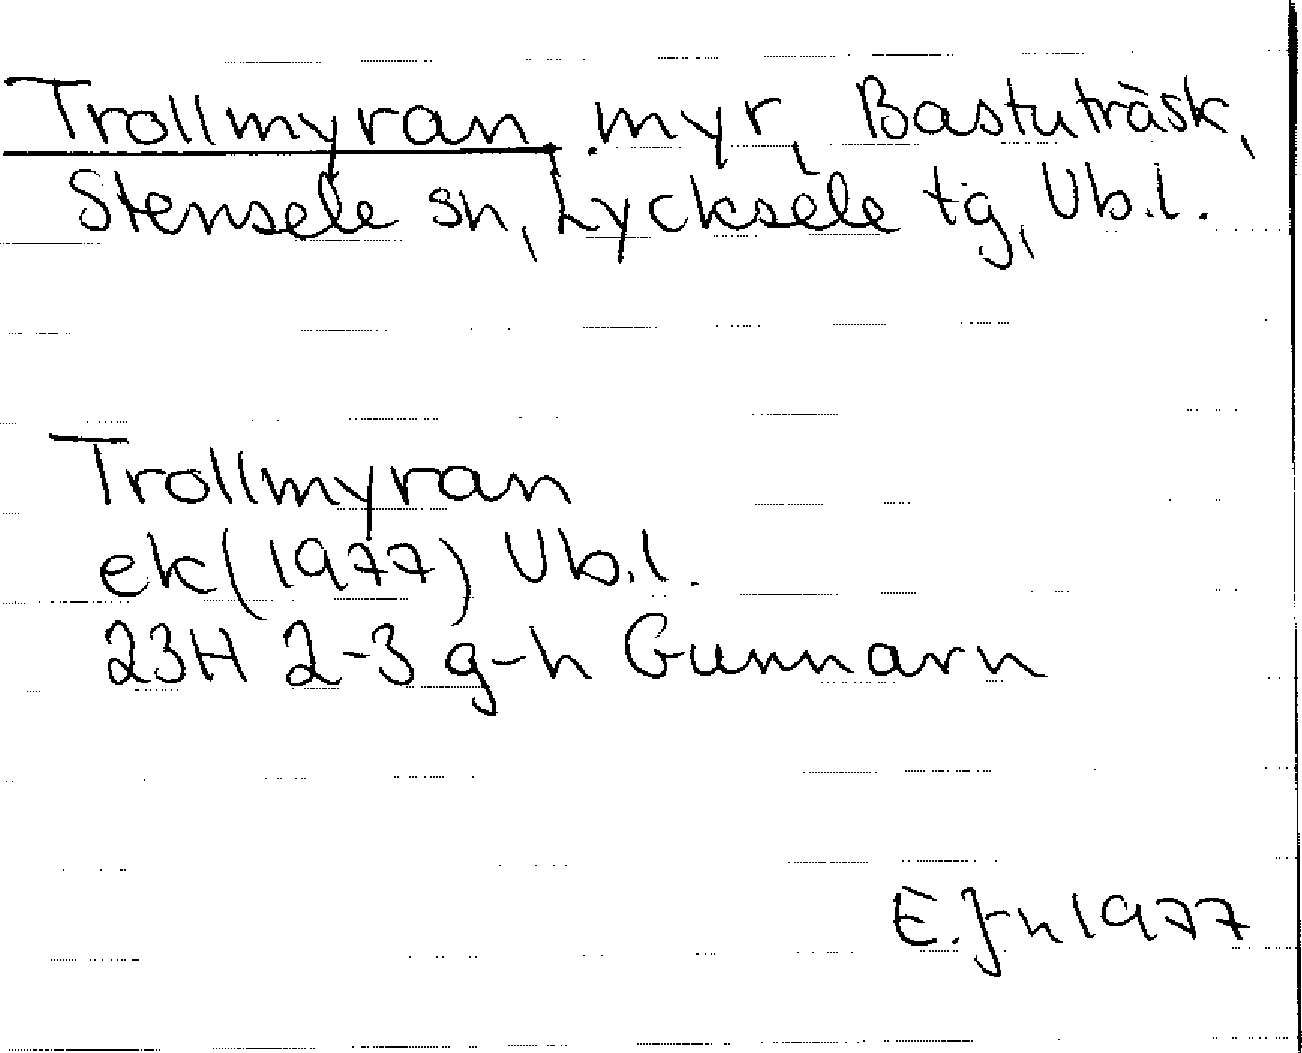 Trollmyran, myr, Bastuträsk,
Stensele sn, Lycksele tg, Vb.l.
Trollmyran
ek (1977) Vb.l.
23H 2-3 g-h Gunnarn
E.Jn 1977